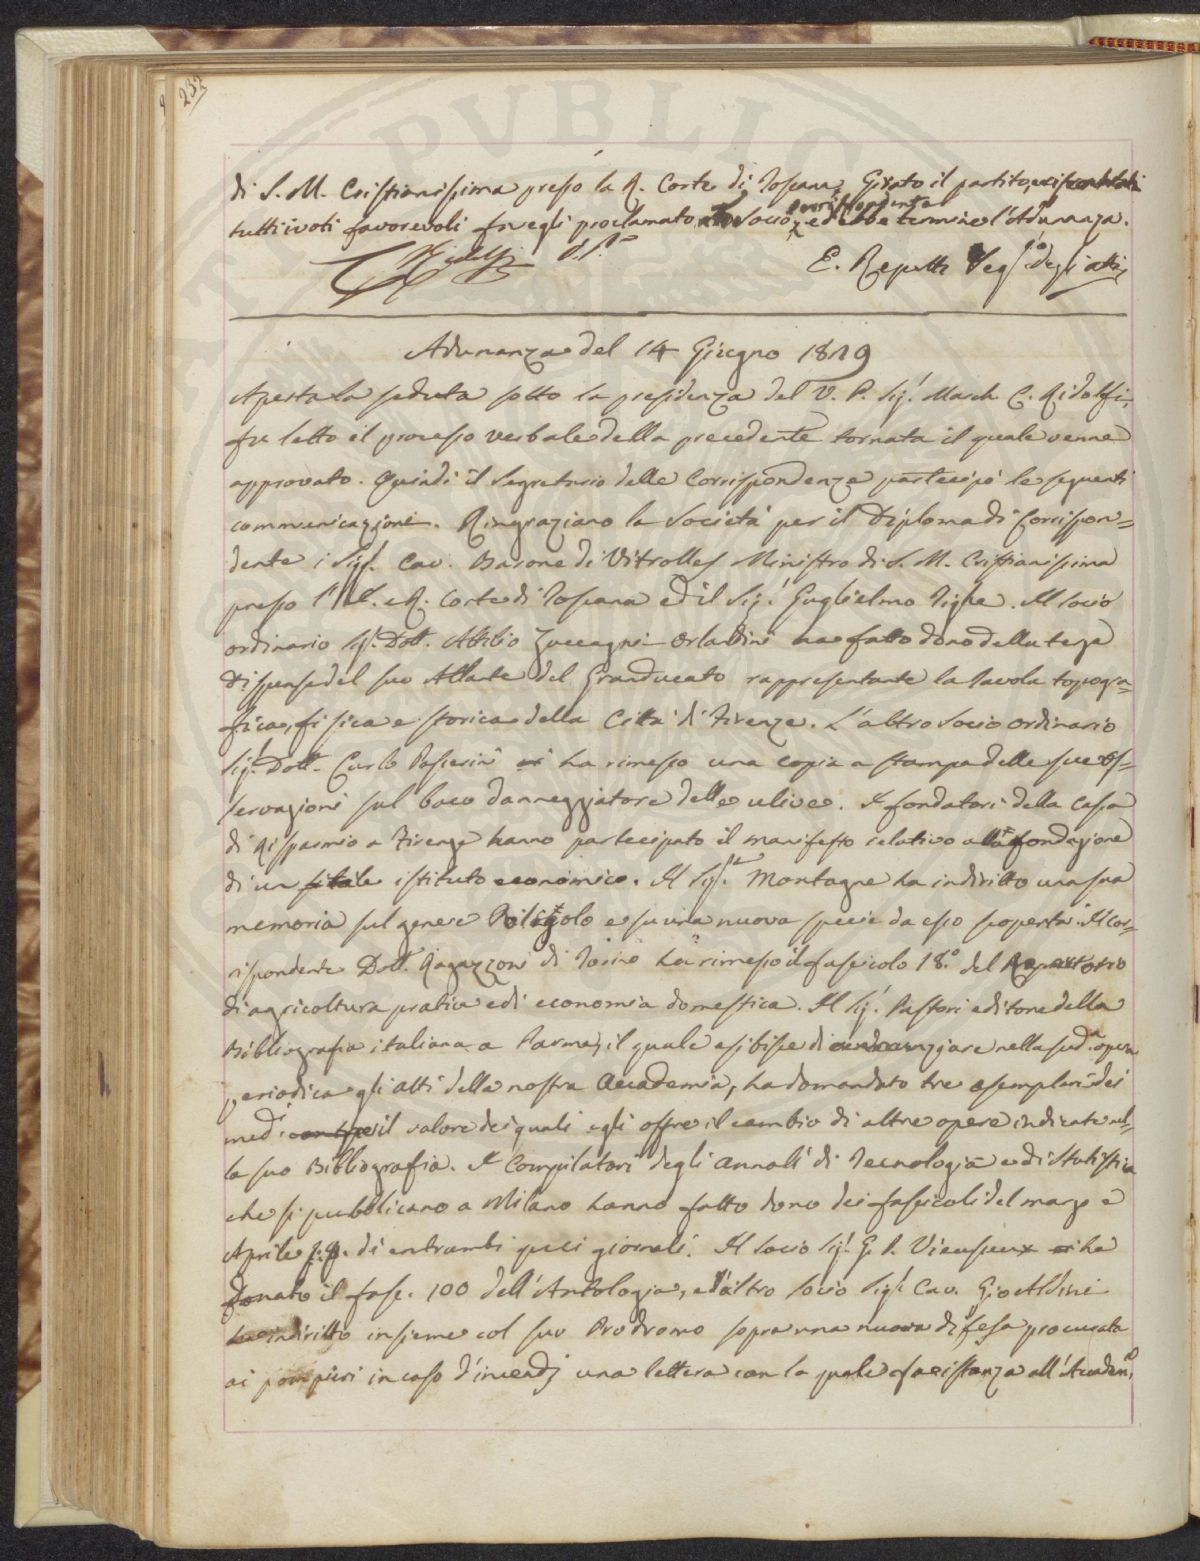 232
di S. M. Cristianissima presso la R. Corte di Toscana. Girato il partito, e riscontrati
tutti i voti favorevoli fu egli proclamato Socio corrispondente, ed ebbe termine l'Adunanza.
C. Ridolfi V. P.e E. Repetti Seg.rio degli atti
Adunanza del 14 Giugno 1829
Aperta la seduta sotto la presidenza del V. P. Sig.r March. C. Ridolfi,
fu letto il processo verbale della precedente tornata il quale venne
approvato. Quindi il Segretario delle Corrispondenze partecipò le seguenti
communicazioni. Ringraziano la Società per il Diploma di Corrispon=
dente i Sigg.ri Cav. Barone di Vitrolles Ministro di S. M. Cristianissima
presso l'I. e R. Corte di Toscana ed il Sig.r Guglielmo Tighe. Il Socio
ordinario Sig.r Dott. Attilio Zuccagni-Orlandini ha fatto dono della terza
Dispensa del suo Atlante del Granducato rappresentante la Tavola topogra=
fica, fisica e storica della Città di Firenze. L'altro Socio ordinario
Sig.r Dott. Carlo Passerini ha rimesso una copia a stampa delle sue Os=
servazioni sul baco danneggiatore delle ulive. I fondatori della Cassa
di Risparmio a Firenze hanno partecipato il manifesto relativo alla fondazione
di un sì tale istituto economico. Il Sig.r Montagne ha indiritto una sua
memoria sul genere e su una nuova specie da esso scoperta. Il Cor=
rispondente Dott. Ragazzoni di Torino ha rimesso il fascicolo 18.o del Repertorio
di agricoltura pratica e di economia domestica. Il Sig.r Pastori editore della
Bibliografia italiana a Parma, il quale esibisce di annunziare nella sud.a opera
periodica gli atti della nostra Accademia, ha domandato tre esemplari dei
med.i il valore dei quali egli offre il cambio di altre opere indicate nel=
la sua Bibliografia. I Compilatori degli Annali di Tecnologia e di Statistica
che si pubblicano a Milano hanno fatto dono dei fascicoli del marzo e
Aprile p.p. di entrambi quei giornali. Il Socio Sig.r G. P. Vieusseux ha
donato il fasc. 100 dell'Antologia, e l'altro Socio Sig.r Cav. Gio Aldini
ha indiritto insieme col suo Prodromo sopra una nuova difesa procurata
ai pompieri in caso d'incendj una lettera con la quale fa istanza all'Accadem.a